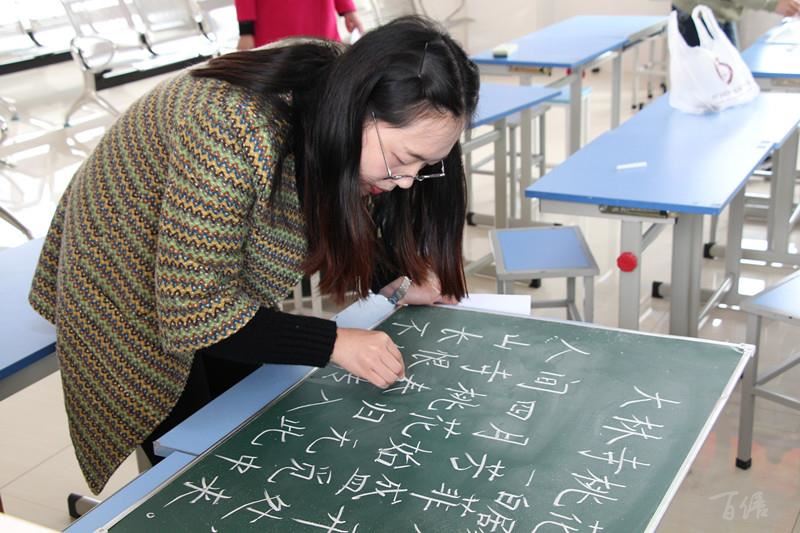 大林寺桃花
一白居
人间四月芳菲
山寺桃花始盛开
长恨春归无觅处
不入此中来。
百倨